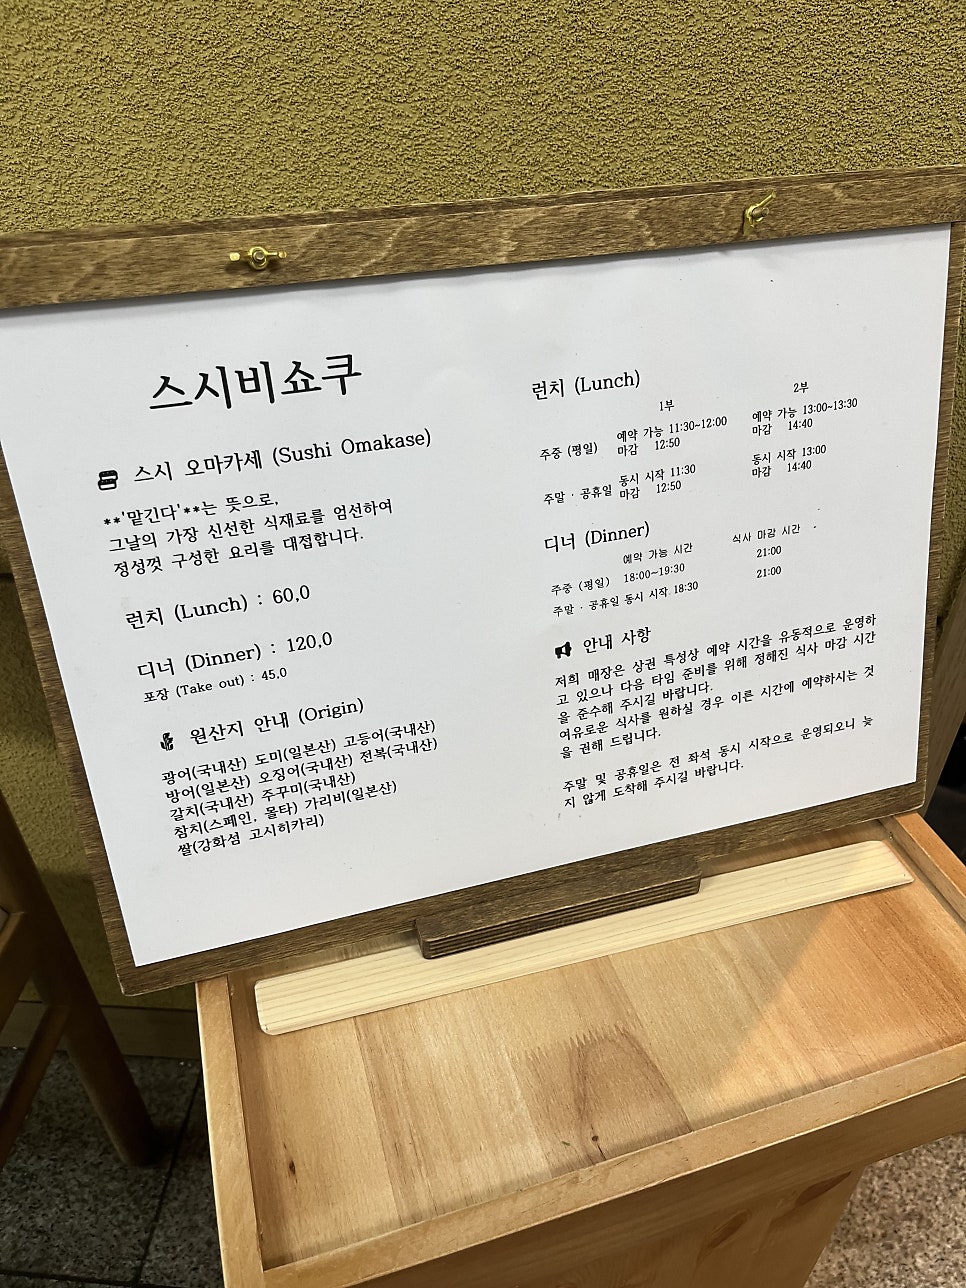 스시비쇼쿠
스시 오마카세 (Sushi Omakase)
**'맡긴다'**는 뜻으로,
그날의 가장 신선한 식재료를 엄선하여
정성껏 구성한 요리를 대접합니다.
런치 (Lunch) : 60,0
디너 (Dinner) : 120,0
포장 (Take out) : 45,0
원산지 안내 (Origin)
광어(국내산) 도미(일본산) 고등어(국내산)
방어(일본산) 오징어(국내산) 전복(국내산)
갈치(국내산) 주꾸미(국내산)
참치(스페인, 몰타) 가리비(일본산)
쌀(강화섬 고시히카리)
런치 (Lunch)
1부 2부
주중 (평일) 예약 가능 11:30~12:00 예약 가능 13:00~13:30
마감 12:50 마감 14:40
주말 · 공휴일 동시 시작 11:30 동시 시작 13:00
마감 12:50 마감 14:40
디너 (Dinner)
예약 가능 시간 식사 마감 시간
주중 (평일) 18:00~19:30 21:00
주말 · 공휴일 동시 시작 18:30 21:00
안내 사항
저희 매장은 상권 특성상 예약 시간을 유동적으로 운영하
고 있으나 다음 타임 준비를 위해 정해진 식사 마감 시간
을 준수해 주시길 바랍니다.
여유로운 식사를 원하실 경우 이른 시간에 예약하시는 것
을 권해 드립니다.
주말 및 공휴일은 전 좌석 동시 시작으로 운영되오니 늦
지 않게 도착해 주시길 바랍니다.